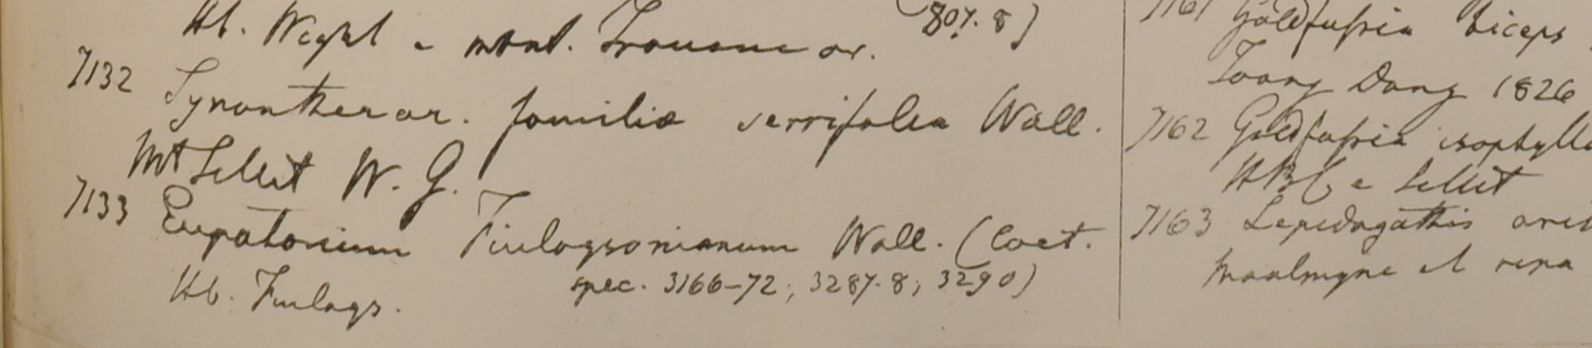 Hb. Wight e mont. (807.8)
7132 Synantherar. familiæ serrifolia Wall.
Mt Sillet W. G.
7133 Eupatorium Finlaysonianum Wall. (Caet.
Hb. Finlays. spec. 3166-72; 3287.8; 3290)
7161 Goldfussia biceps
Toong Dong 1826
7162 Goldfussia isophylla
HBC e Sillet
7163 Lepidagathis
Moalmyne et ripa